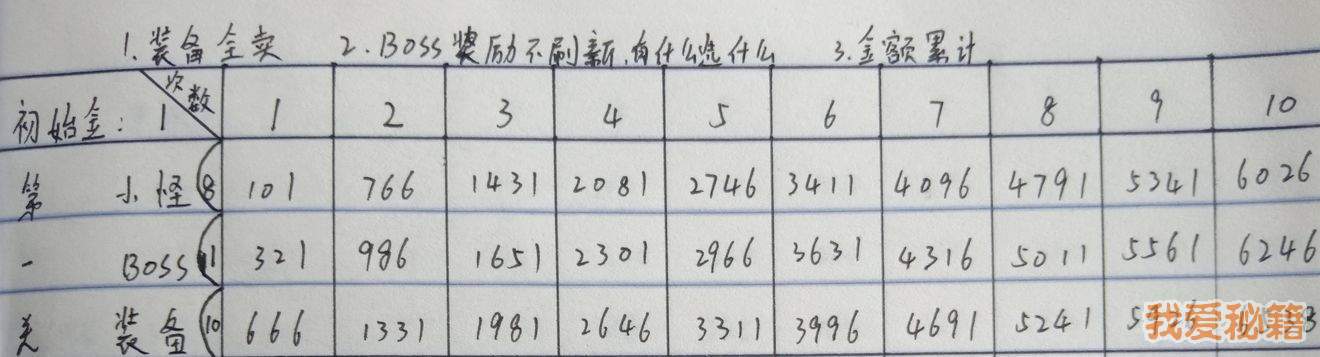 1.装备全卖 2.BOSS奖励不刷新,有什么选什么 3.金额累计
初始金:1 次数 1 2 3 4 5 6 7 8 9 10
第 小怪(8 101 766 1431 2081 2746 3411 4096 4791 5341 6026
一 BOSS(1 321 986 1651 2301 2966 3631 4316 5011 5561 6246
关 装备(10 666 1331 1981 2646 3311 3996 4691 5241
我爱秘籍